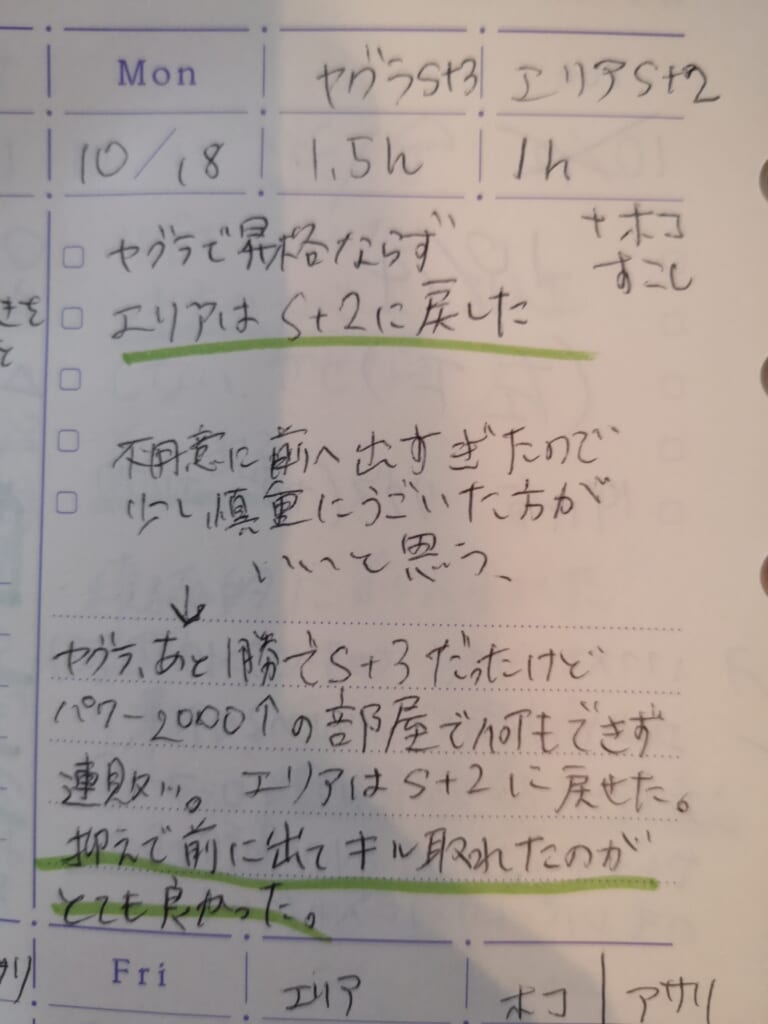 Mon ヤグラS+3 エリアS+2
10/18 1.5h 1h
+ホコ
すこし
ヤグラで昇格ならず
エリアは S+2に戻した
不用意に前へ出すぎたので
少し慎重にうごいた方が
いいと思う、
↓
ヤグラ、あと1勝でS+3だったけど
パワー2000↑の部屋で何もできず
連敗…。エリアはS+2に戻せた。
抑えで前に出てキル取れたのが
とても良かった。
きを
と
Fri エリア ホコ アサリ